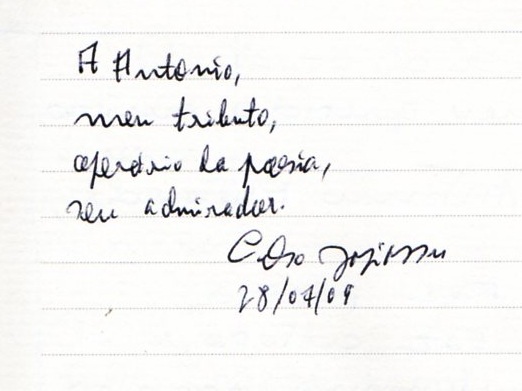 A Antonio,
meu tributo,
operário da poesia,
seu admirador.
Celso Japiassu
28/07/09